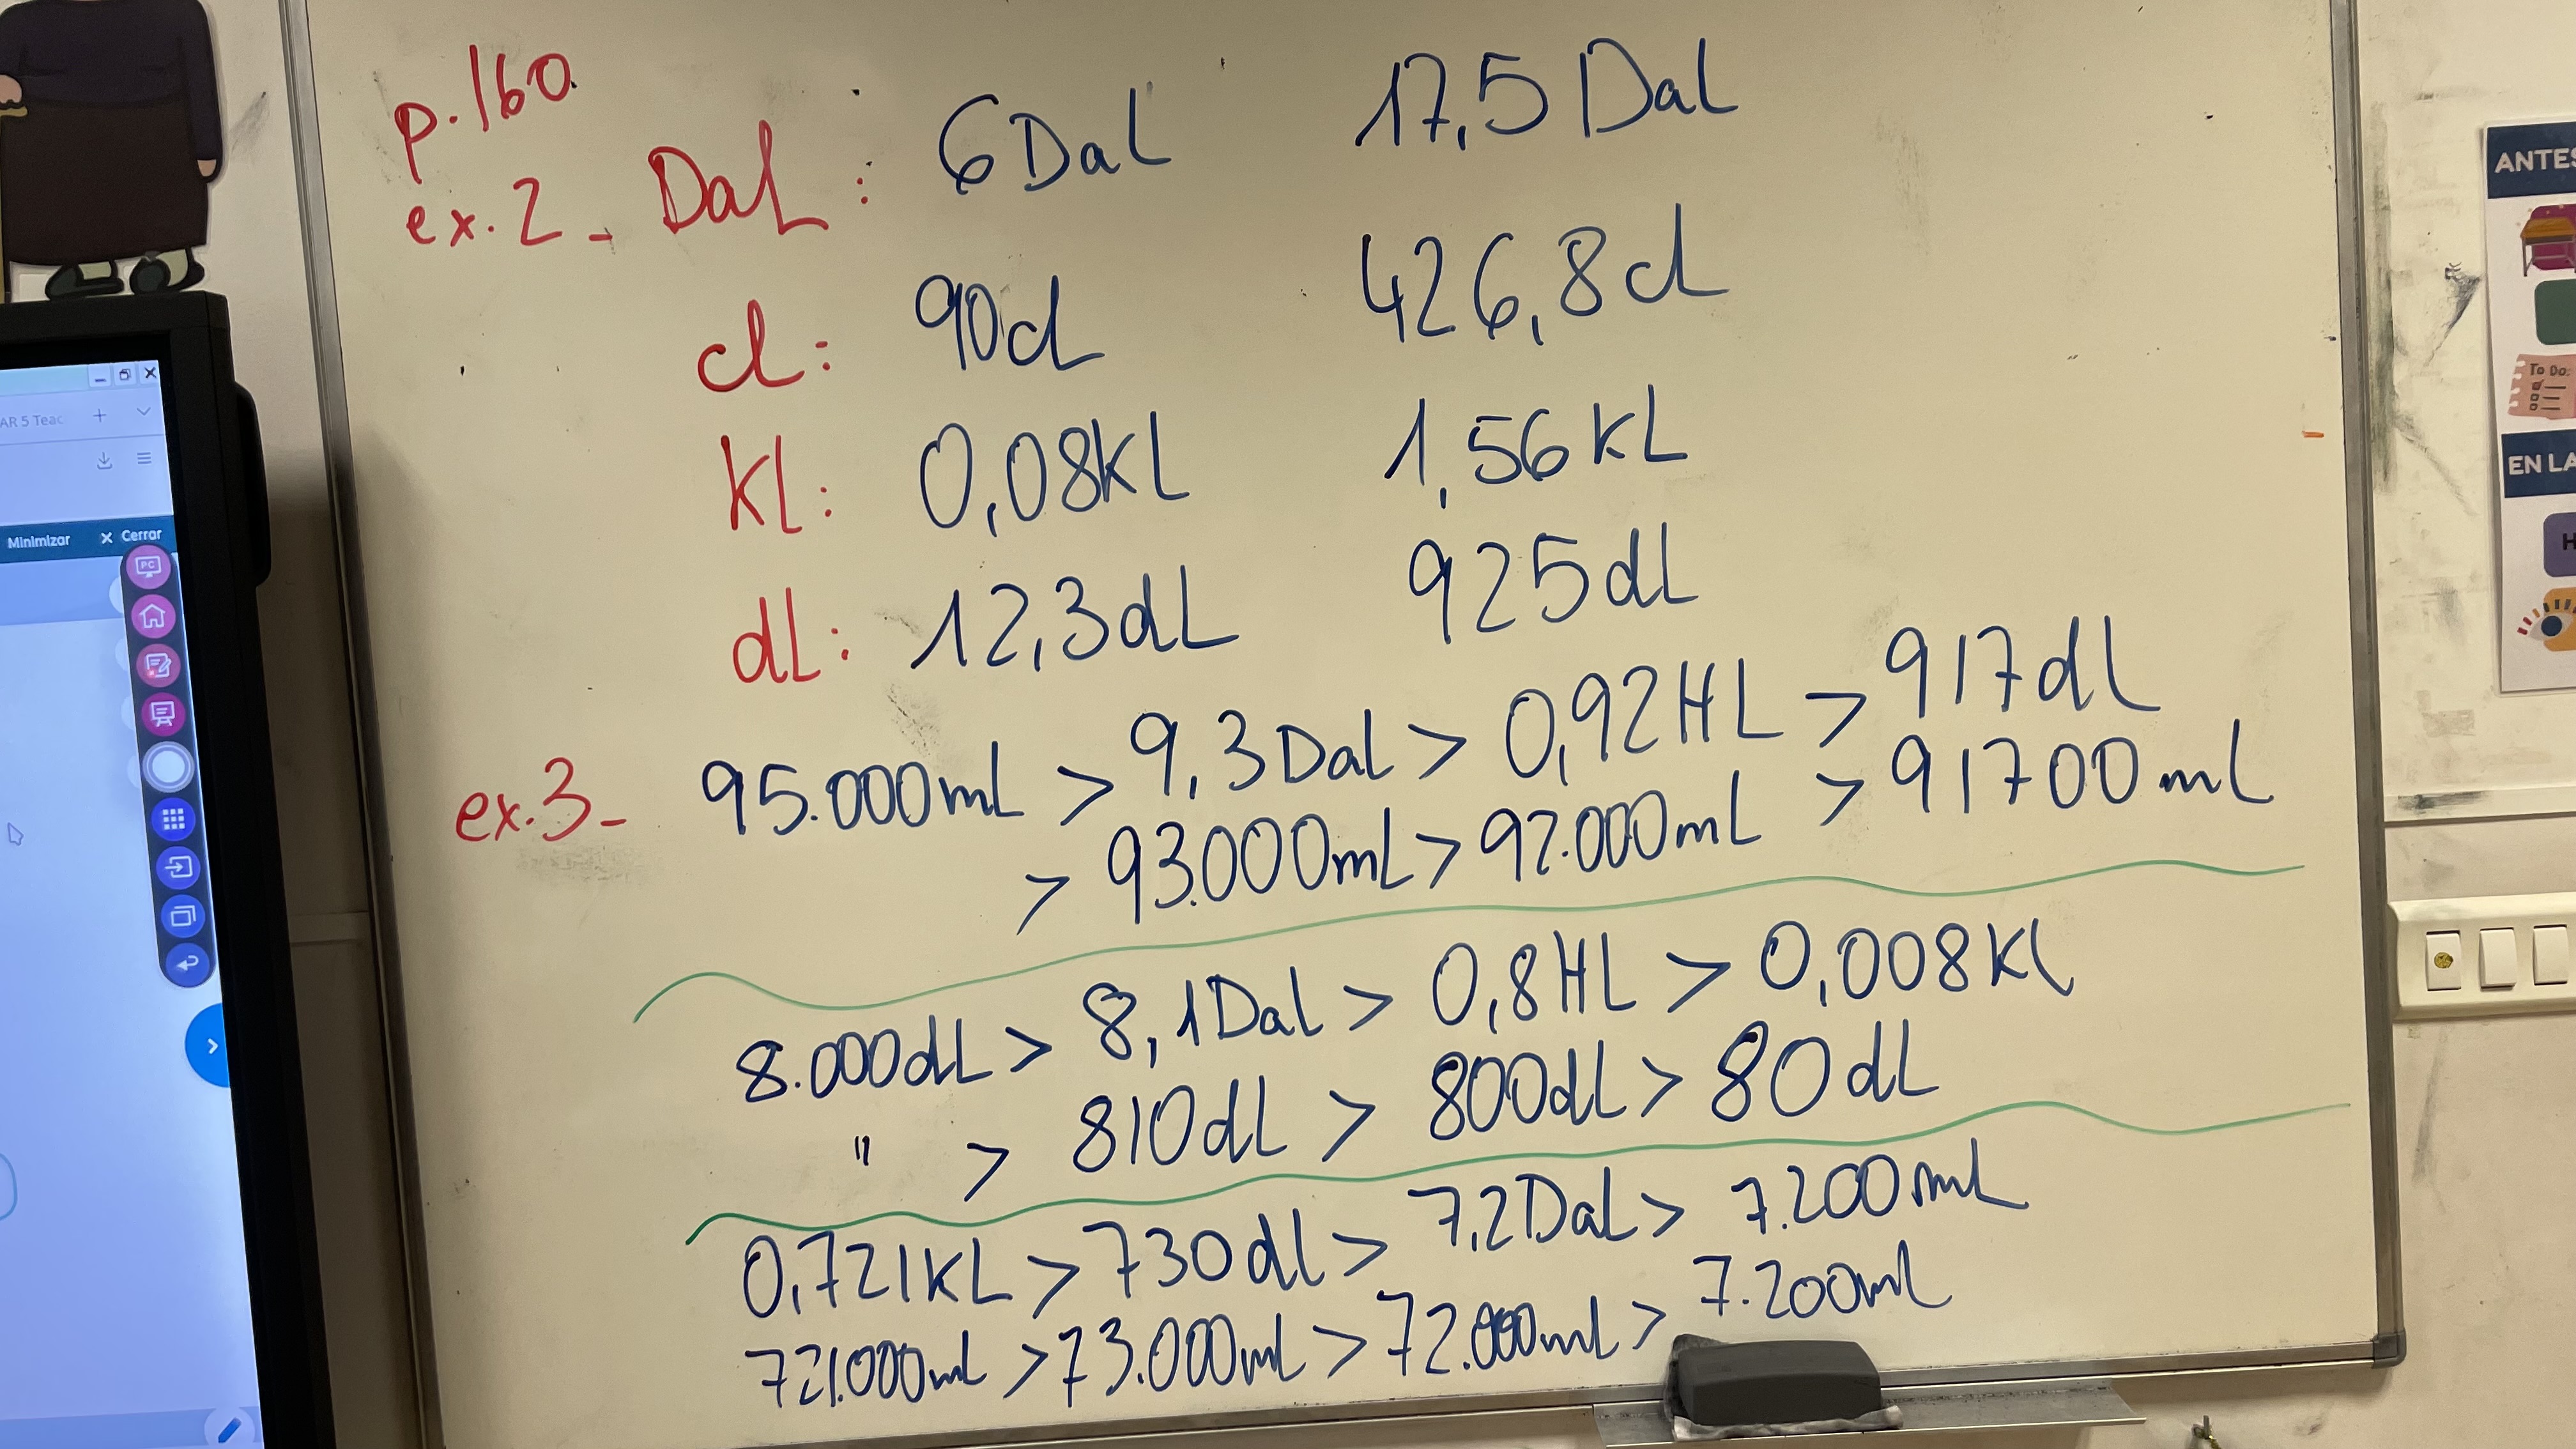 p.160
ex.2_ DaL: 6 DaL 17,5 DaL
cl: 90cl 426,8cl
kL: 0,08kL 1,56 kL
dL: 12,3dL 925dL
ex.3_ 95.000mL > 9,3 DaL > 0,92HL > 917dL
> 93.000mL > 92.000mL > 91700mL
8.000dL > 8,1DaL > 0,8HL > 0,008KL
" > 810dL > 800dL > 80dL
0,721KL > 730dL > 7,2DaL > 7.200mL
721.000mL > 73.000mL > 72.000mL > 7.200mL
AR 5 Teac
Minimizar
Cerrar
PC
ANTES
To Do:
EN LA
H